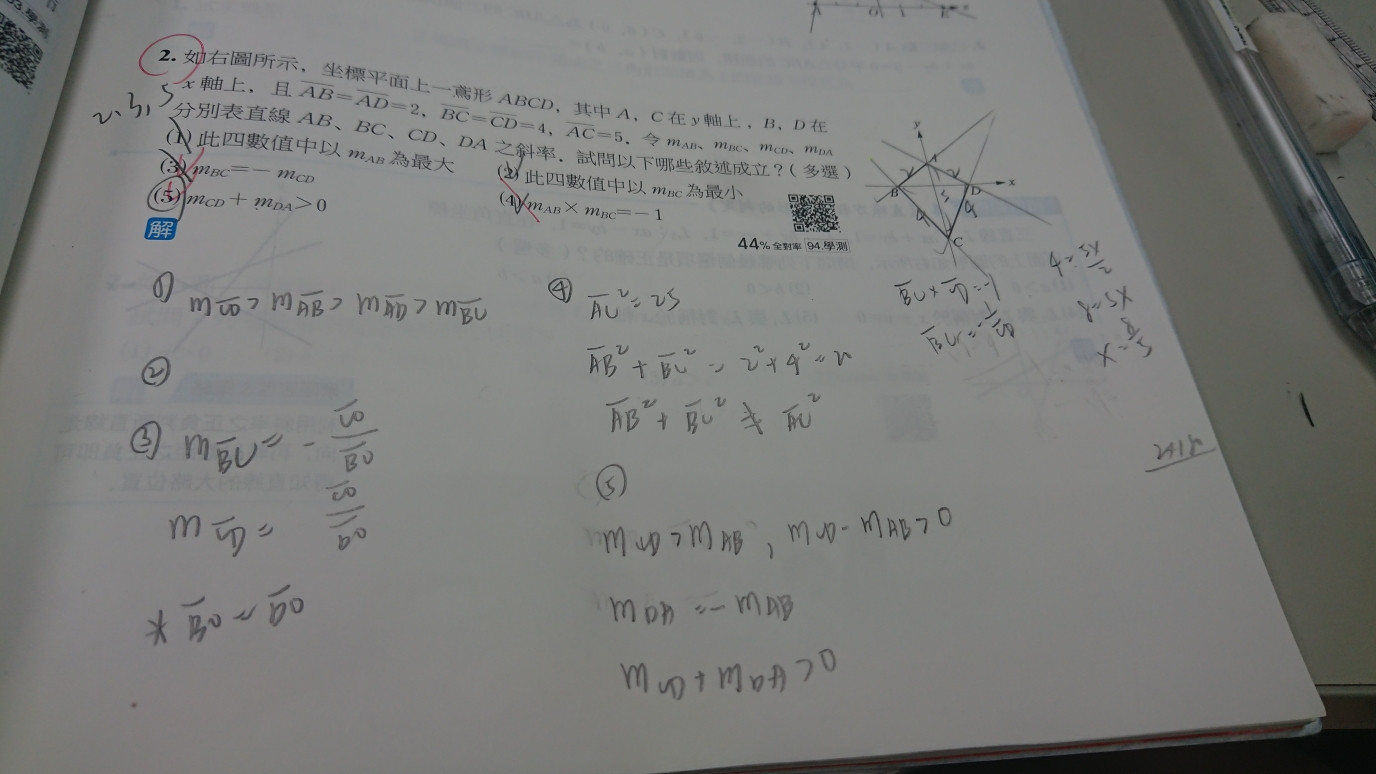 2. 如右圖所示，坐標平面上一鳶形 ABCD，其中 A，C 在 y 軸上，B，D 在
x 軸上，且 AB=AD=2，BC=CD=4，AC=5．令 mAB、mBC、mCD、mDA
分別表直線 AB、BC、CD、DA 之斜率．試問以下哪些敘述成立？(多選)
(1) 此四數值中以 mAB 為最大
(2) 此四數值中以 mBC 為最小
(3) mBC=－mCD
(4) mAB×mBC=－1
(5) mCD＋mDA＞0
2,3,5
解
44% 全對率 94.學測
y
A
B
D
x
C
2
2
5
4
4
① mCD > mAB > mAD > mBC
②
③ mBC = - CO/BO
mCD = CO/DO
* BO = DO
④ AC² = 25
AB² + BC² = 2² + 4² = 20
AB² + BC² ≠ AC²
⑤
mCD > mAB , mCD - mAB > 0
mDA = - mAB
mCD + mDA > 0
BC × CD = -1
BC = -1/CD
4 = 5x/2
8 = 5x
x = 8/5